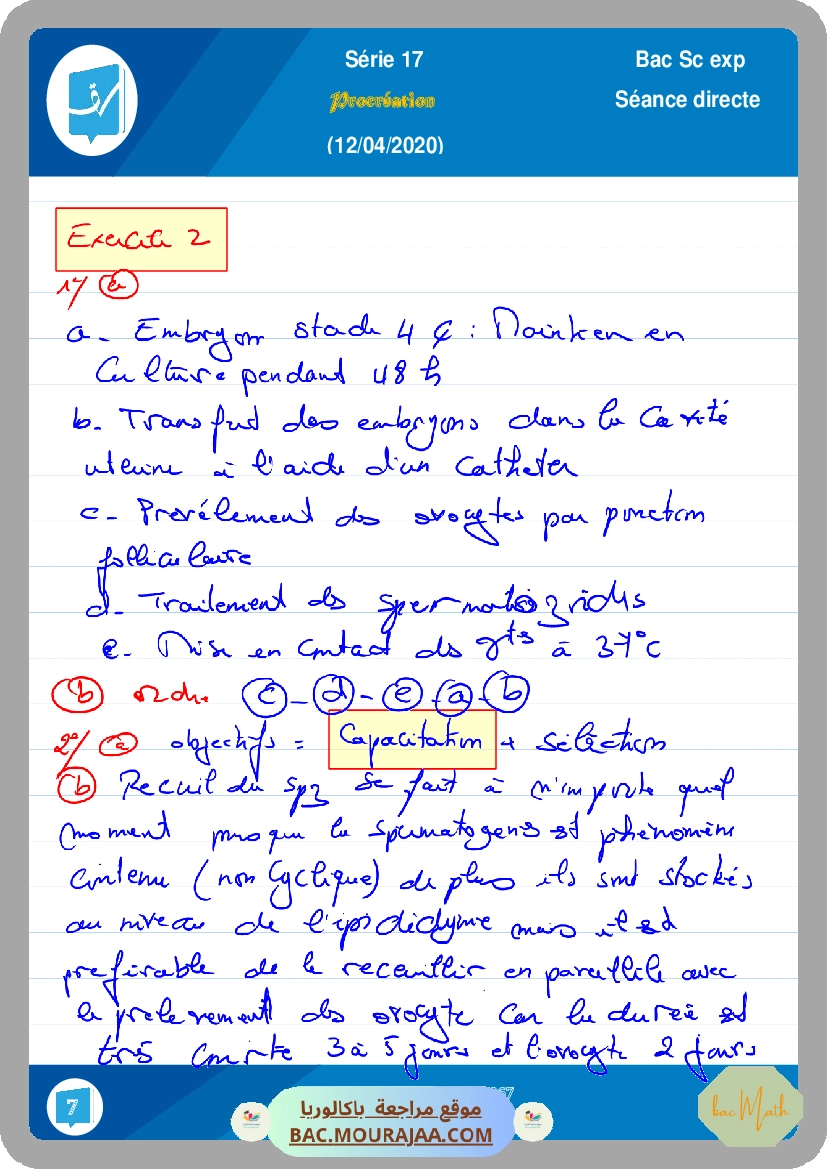 Série 17
Bac Sc exp
Procréation
Séance directe
(12/04/2020)
Exercice 2
1°/ a
a - Embryon stade 4 ¢ : Maintien en
Culture pendant 48 h
b - Transfert des embryons dans la Cavité
uterine à l'aide d'un Catheter
c - Prevélement des ovocytes par punction
folliculaire
d - Traitement ds spermatozoides
e - Mise en contact ds gts à 37°C
b ordre c - d - e - a - b
2°/ a objectifs = Capacitation + Séléction
b Recuil du spz se fait à n'importe quel
moment puisque la spermatogenis est phénomène
contenu (non Cyclique) de plus ils sont stockés
au niveau de l'épididyme mais il est
prefirable de le recueillir en parallèle avec
le prelevement ds ovocyte Car la dureé est
trés courte 3 à 5 jours et l'ovocyte 2 jours
7
موقع مراجعة باكالوريا
BAC.MOURAJAA.COM
bac Math